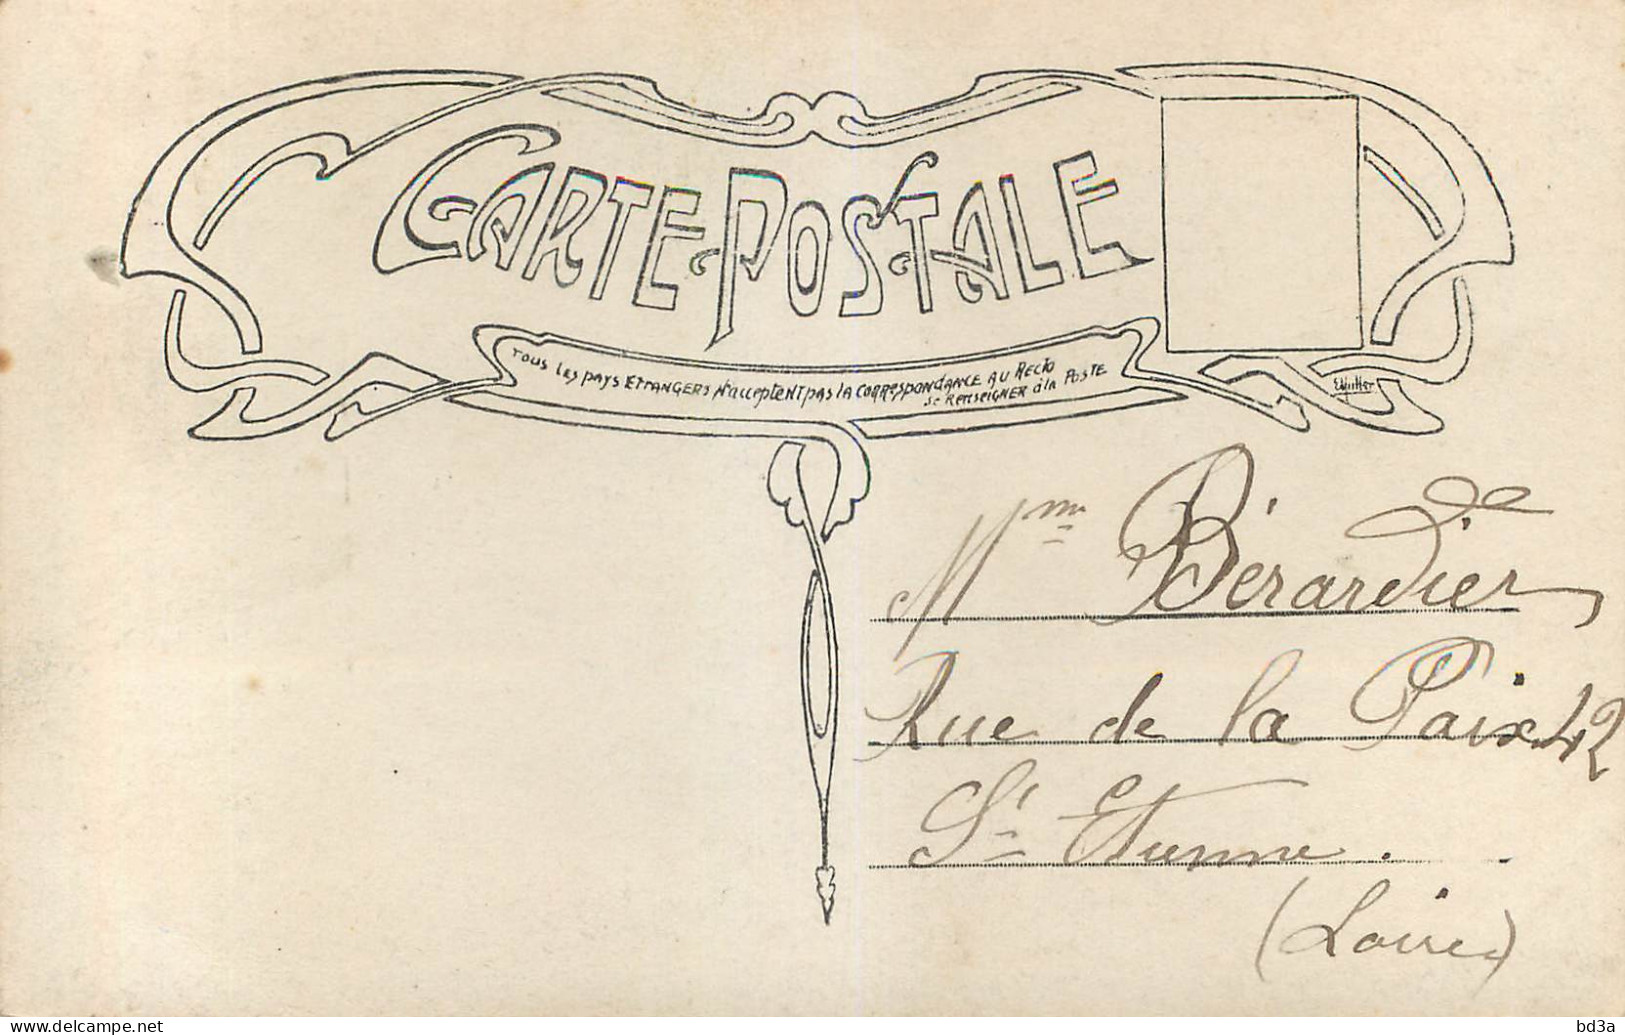 CARTE POSTALE
Tous les pays Etrangers n'acceptent pas la Correspondance au Recto
se Renseigner à la Poste
Mme Bérardier
Rue de la Paix 42
St Etienne.
(Loire)
bd3a